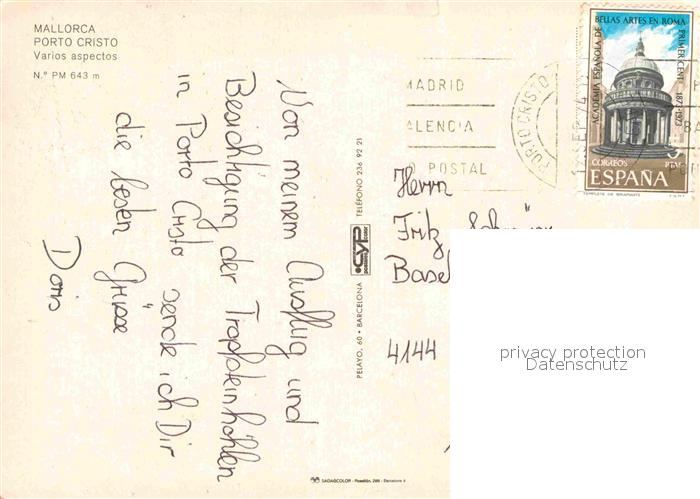 MALLORCA
PORTO CRISTO
Varios aspectos
N.º PM 643 m
Von meinem Ausflug und
Besichtigung der Tropfsteinhöhlen
in Porto Cristo sende ich Dir
die besten Grüsse
Doris
PELAYO, 60 • BARCELONA TELÉFONO 236 92 21
CYP
MADRID
ALENCIA
O POSTAL
PORTO CRISTO
ACADEMIA ESPAÑOLA DE BELLAS ARTES EN ROMA PRIMER CENT. 1873-1973
CORREOS
ESPAÑA
6 PTAS
TEMPLETE DE BRAMANTE F.N.M.T.
Herrn
Fritz
Basel
4144
privacy protection
Datenschutz
SADAGCOLOR - Rosellón, 298 - Barcelona